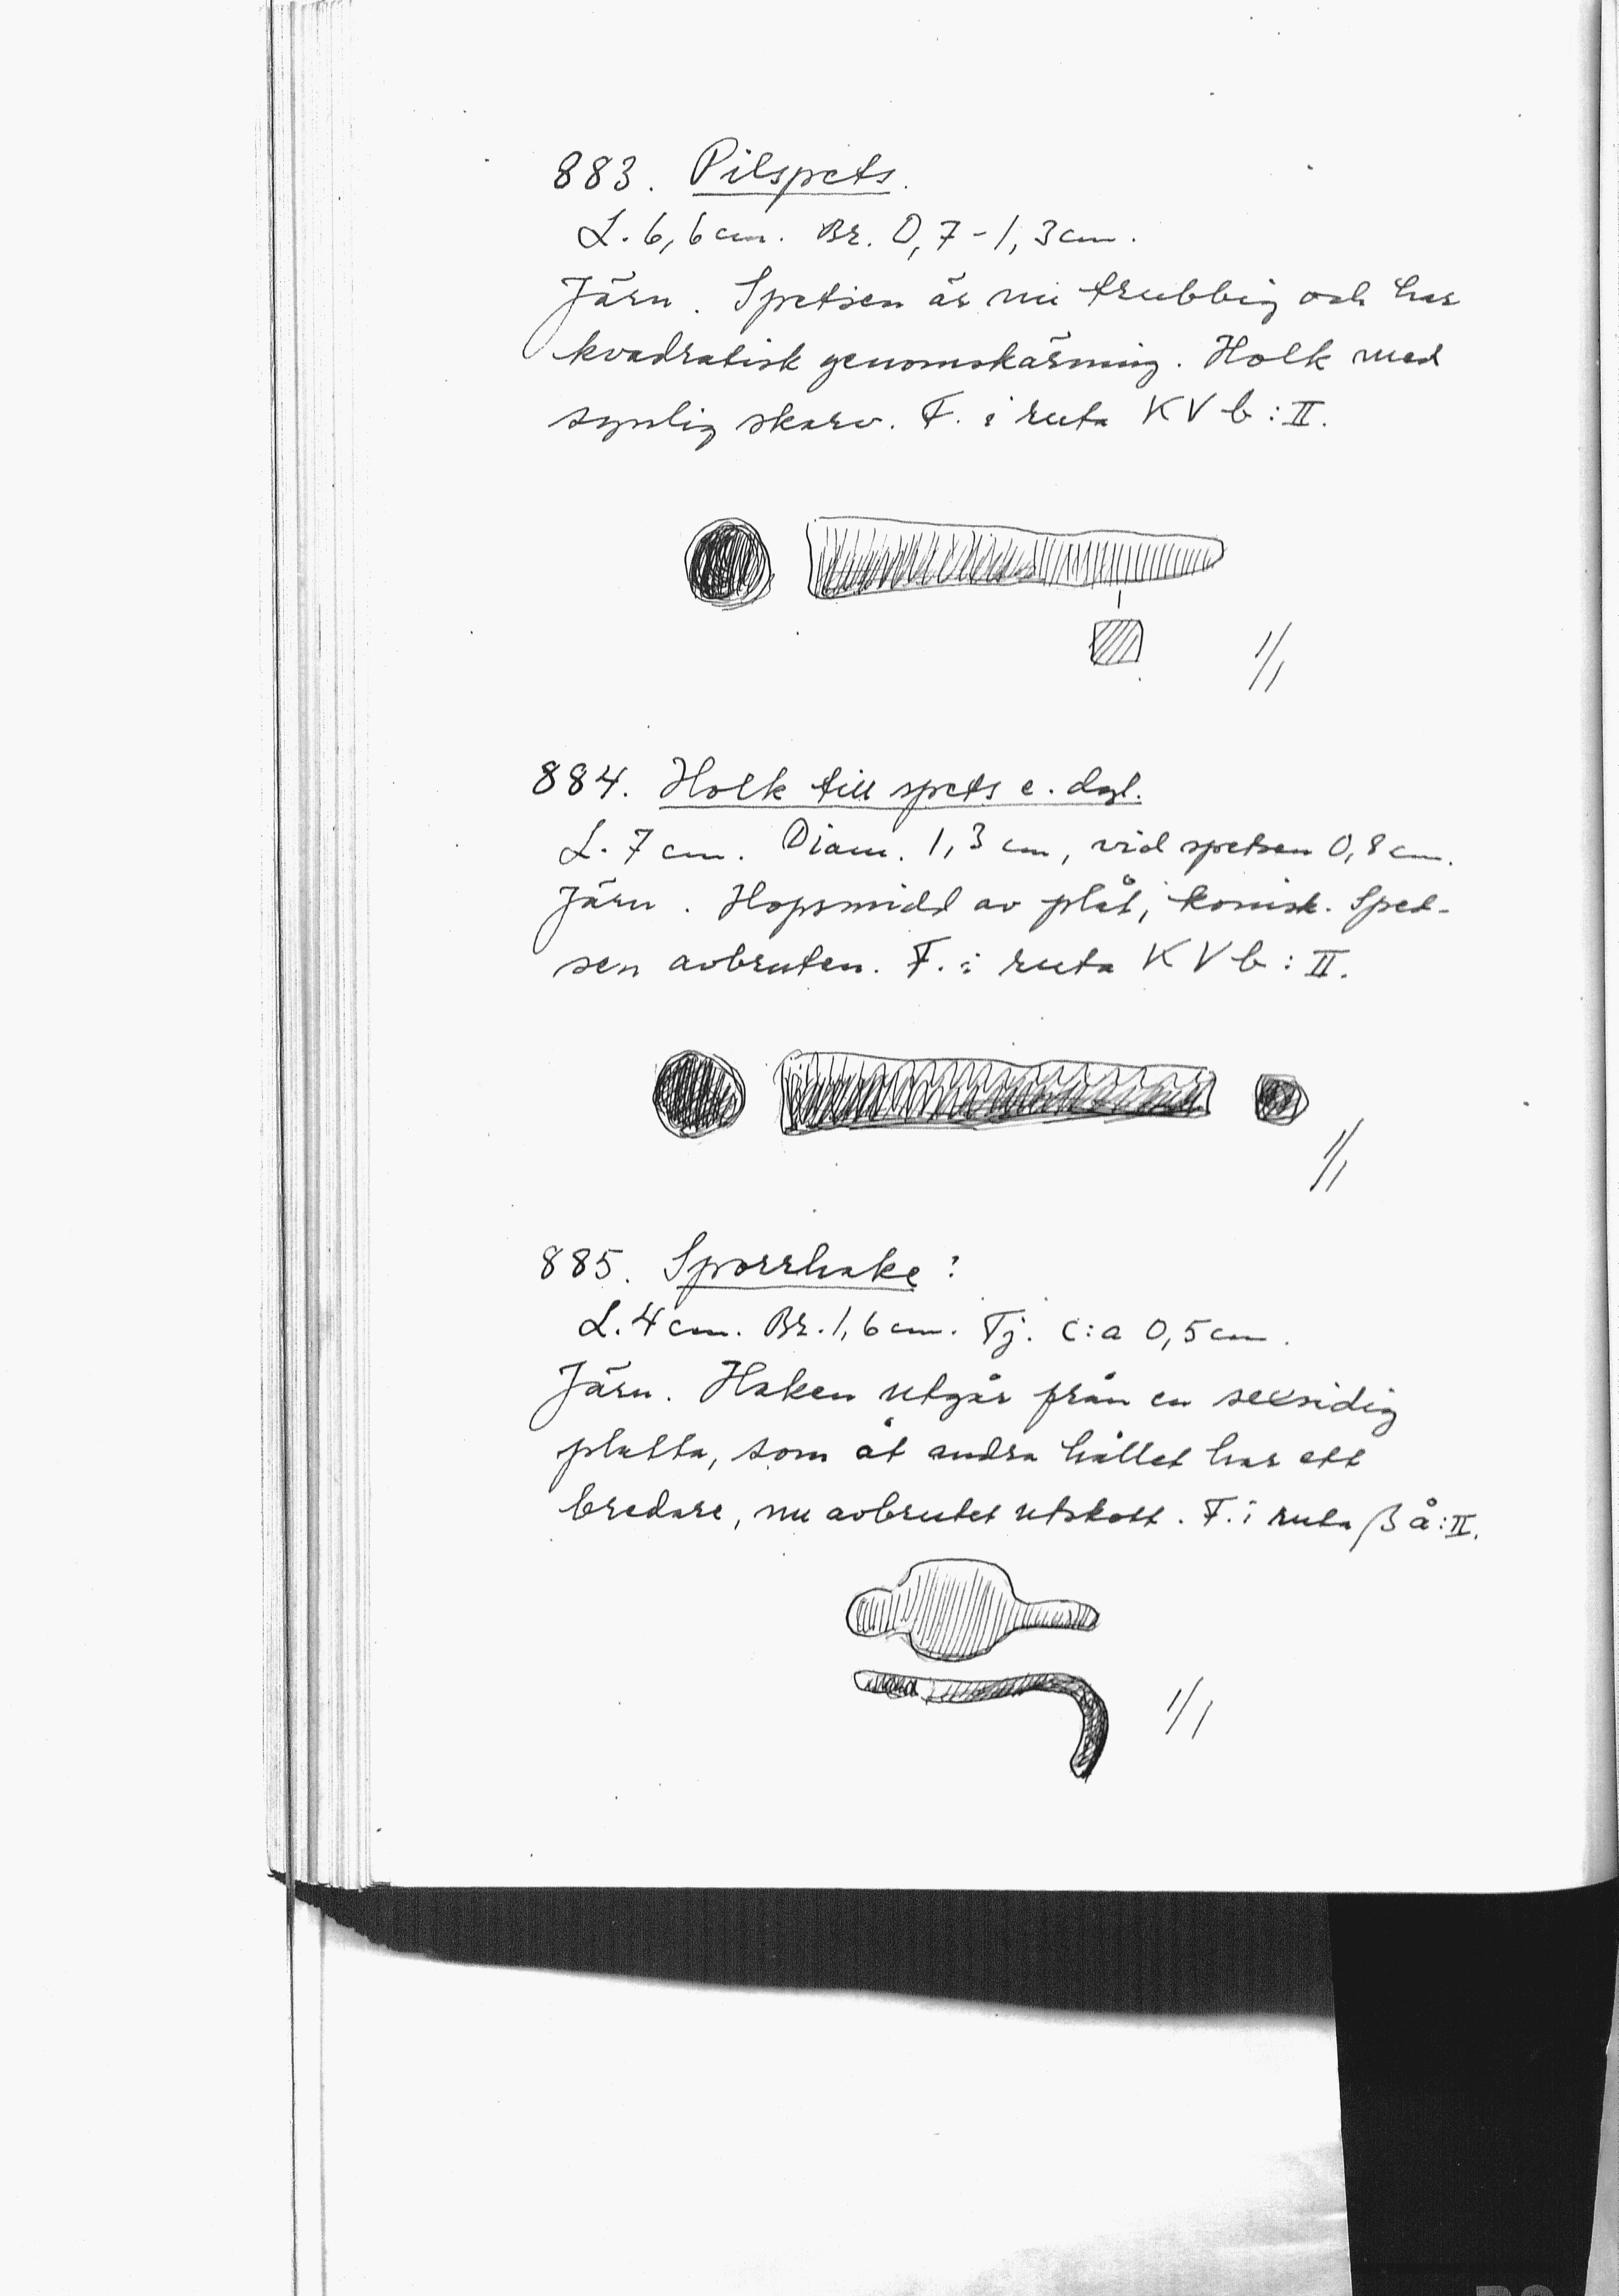 883. Pilspets.
L. 6,6 cm. Br. 0,7-1,3 cm.
Järn. Spetsen är nu trubbig och har
kvadratisk genomskärning. Holk med
synlig skarv. F. i ruta KVb:II.
1/1
884. Holk till spets e. dyl.
L. 7 cm. Diam. 1,3 cm, vid spetsen 0,8 cm.
Järn. Hopsmidd av plåt, konisk. Spet-
sen avbruten. F. i ruta KVb:II.
1/1
885. Sporrhake?
L. 4 cm. Br. 1,6 cm. Tj. c:a 0,5 cm.
Järn. Haken utgår från en sexsidig
platta, som åt andra hållet har ett
bredare, nu avbrutet utskott. F. i ruta βå:II.
1/1